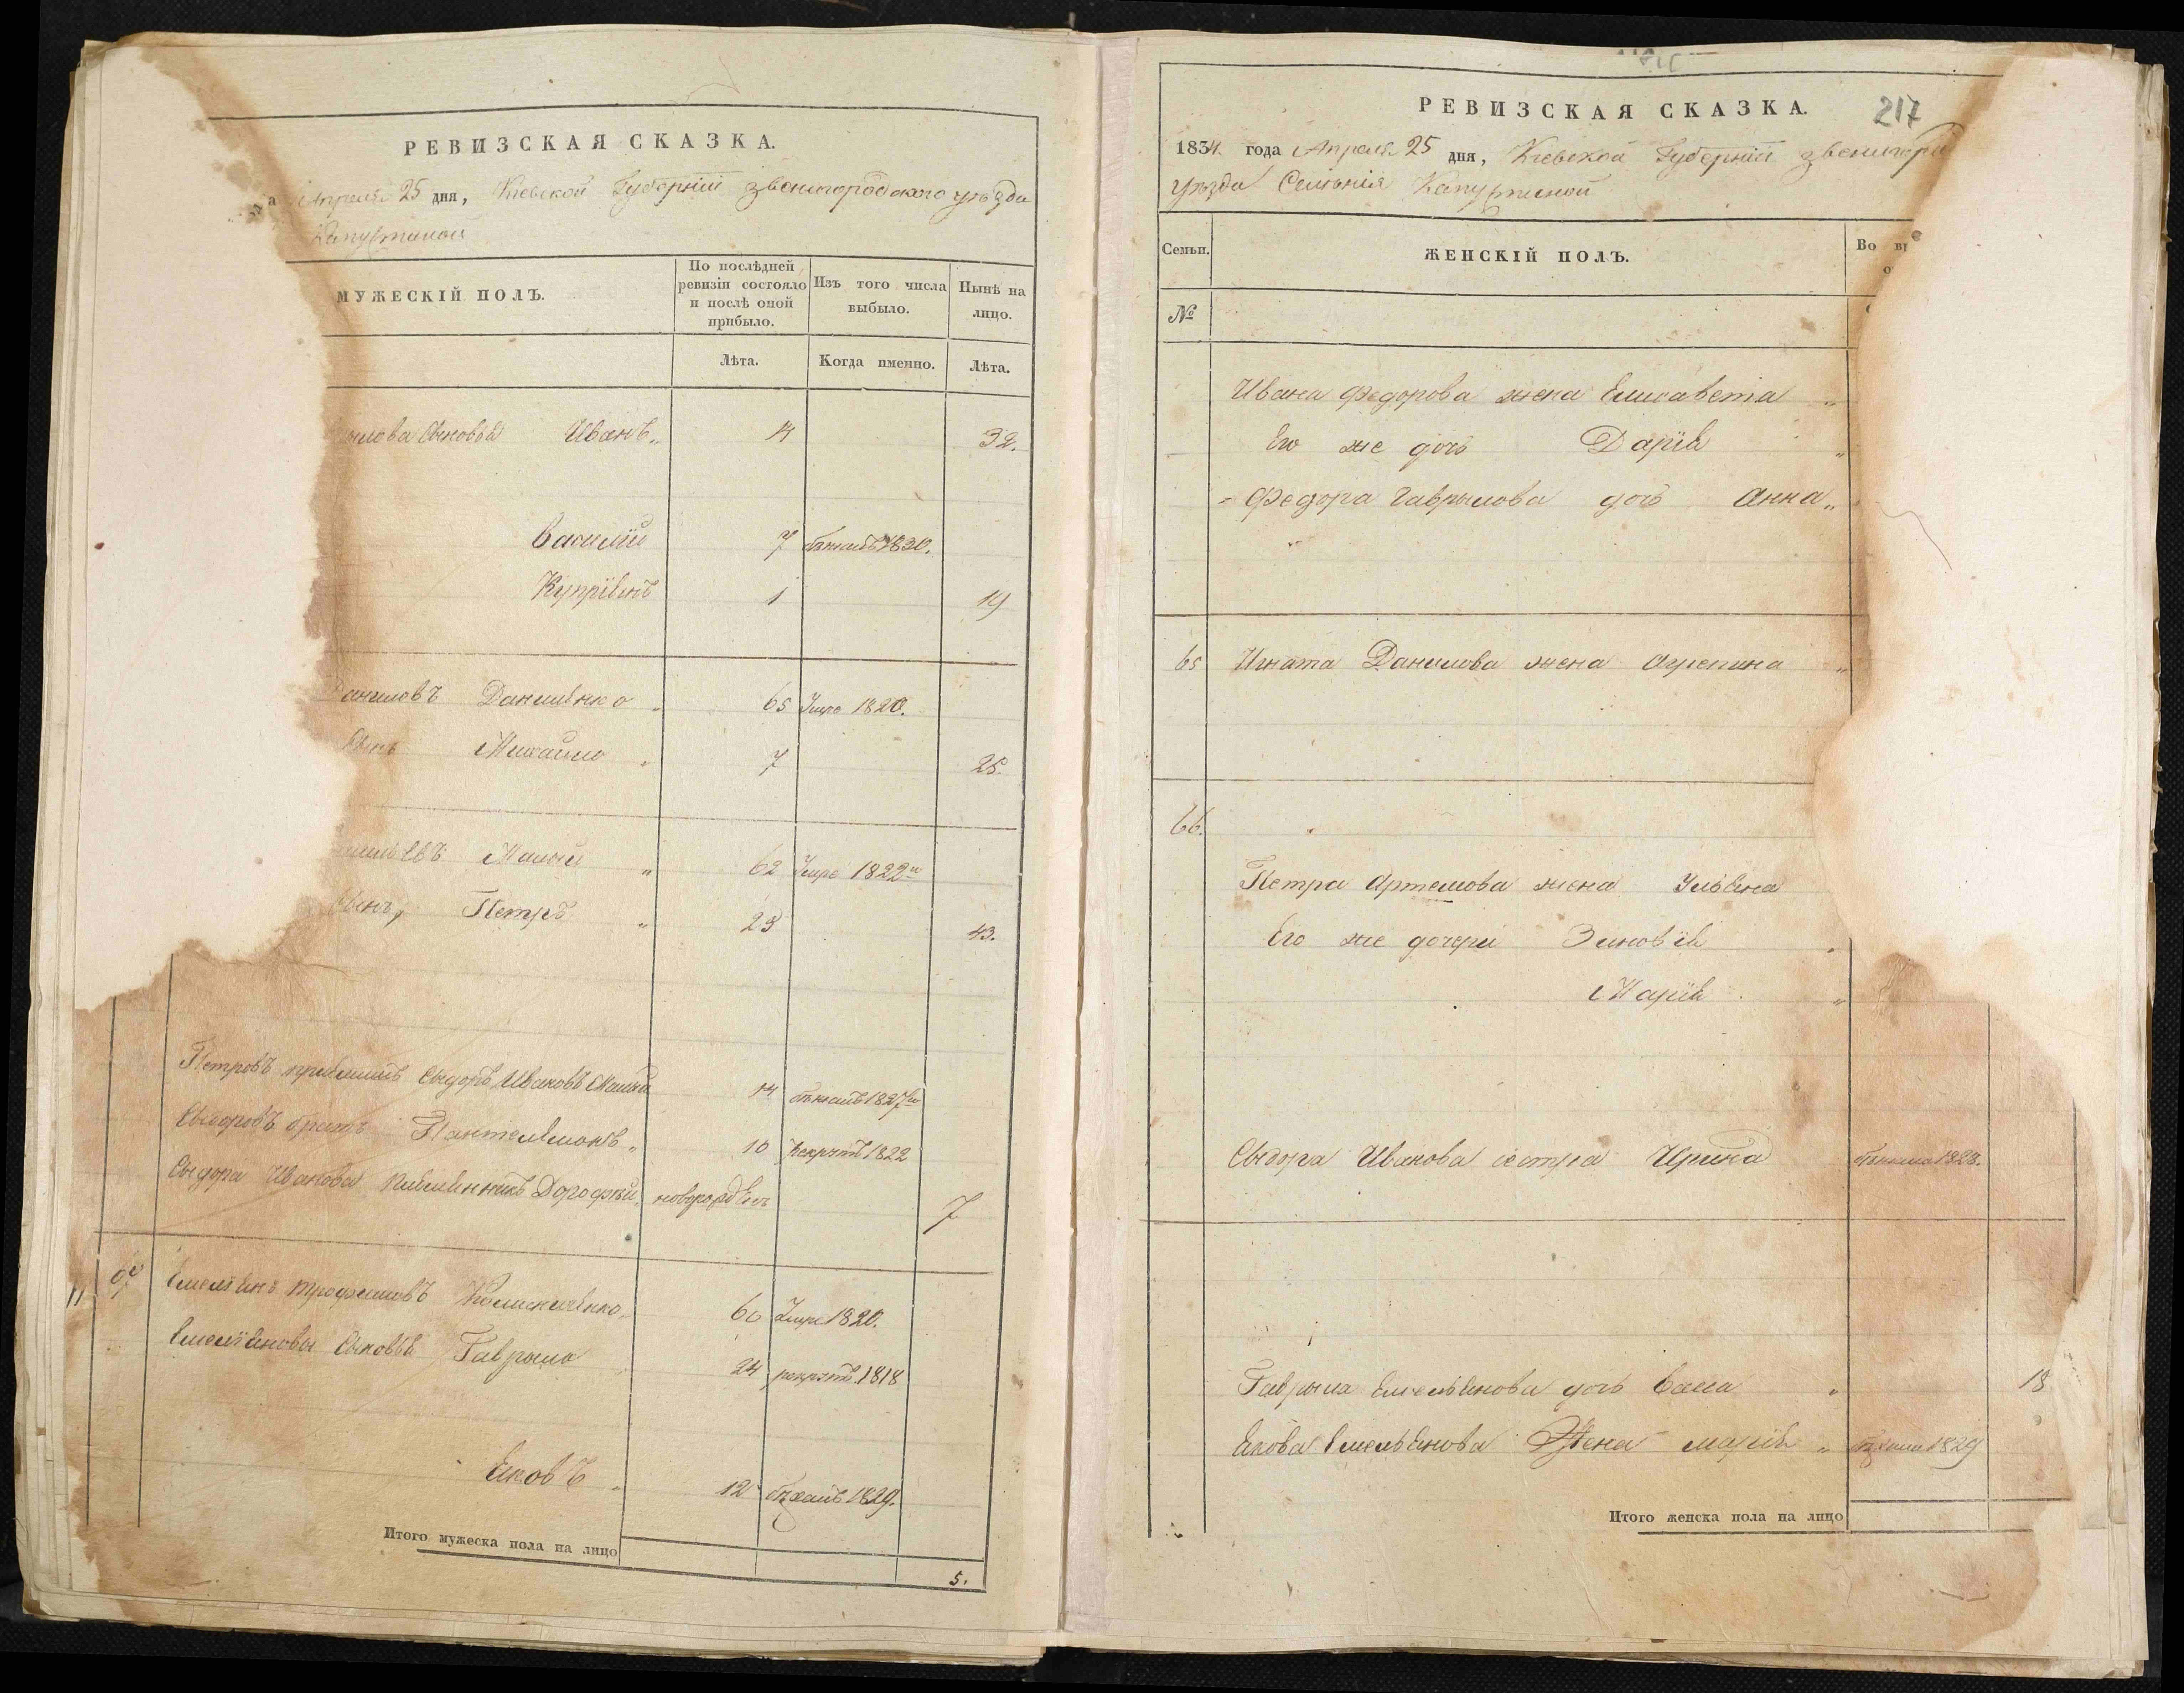 РЕВИЗСКАЯ СКАЗКА.
а Апреля 25 дня, Кіевской Губерніи звенигородского уезда
Капустиной
МУЖЕСКІЙ ПОЛЪ.
По послѣдней ревизіи состояло и послѣ оной прибыло.
Изъ того числа выбыло.
Нынѣ на лицо.
Лѣта.
Когда именно.
Лѣта.
рылова Сыновья Иванъ 14 32.
Василій 7 бежалъ 1830.
Купріянъ 1 19
Даниловъ Даниленко 65 Умре 1820.
Сынъ Михайло 7 25.
Малый 62 Умре 1822
Сынъ, Петръ 23 43.
Петровъ Сыдоръ Ивановъ Малый 14 бежалъ 1827
Сыдоровъ братъ Пантелемонъ 10 рекрутъ 1822
Сыдора Иванова племянникъ Дорофей новорожденъ 7
67 Емельянъ Трофимовъ 60 Умре 1820.
Емельяновы Сыновья Гаврыло 24 рекрутъ 1818
Яковъ 12 бежалъ 1829.
Итого мужеска пола на лицо
5.
217
РЕВИЗСКАЯ СКАЗКА.
1834 года Апреля 25 дня, Кіевской Губерніи звенигород
уезда Селенія Капустиной
Семьи.
ЖЕНСКІЙ ПОЛЪ.
Во вр
№
Ивана Федорова жена Елисавета
Его же дочь Дарія
Федора Гаврылова дочь Анна
65 Игната Данилова жена Агрепина
66.
Петра Артемова жена Ульяна
Его же дочери Зиновія
Марія
Сыдора Иванова сестра Ирина бежала 1828.
Гаврыла Емельянова дочь Васса 18
Якова Емельянова Жена марія бежала 1829
Итого женска пола на лицо